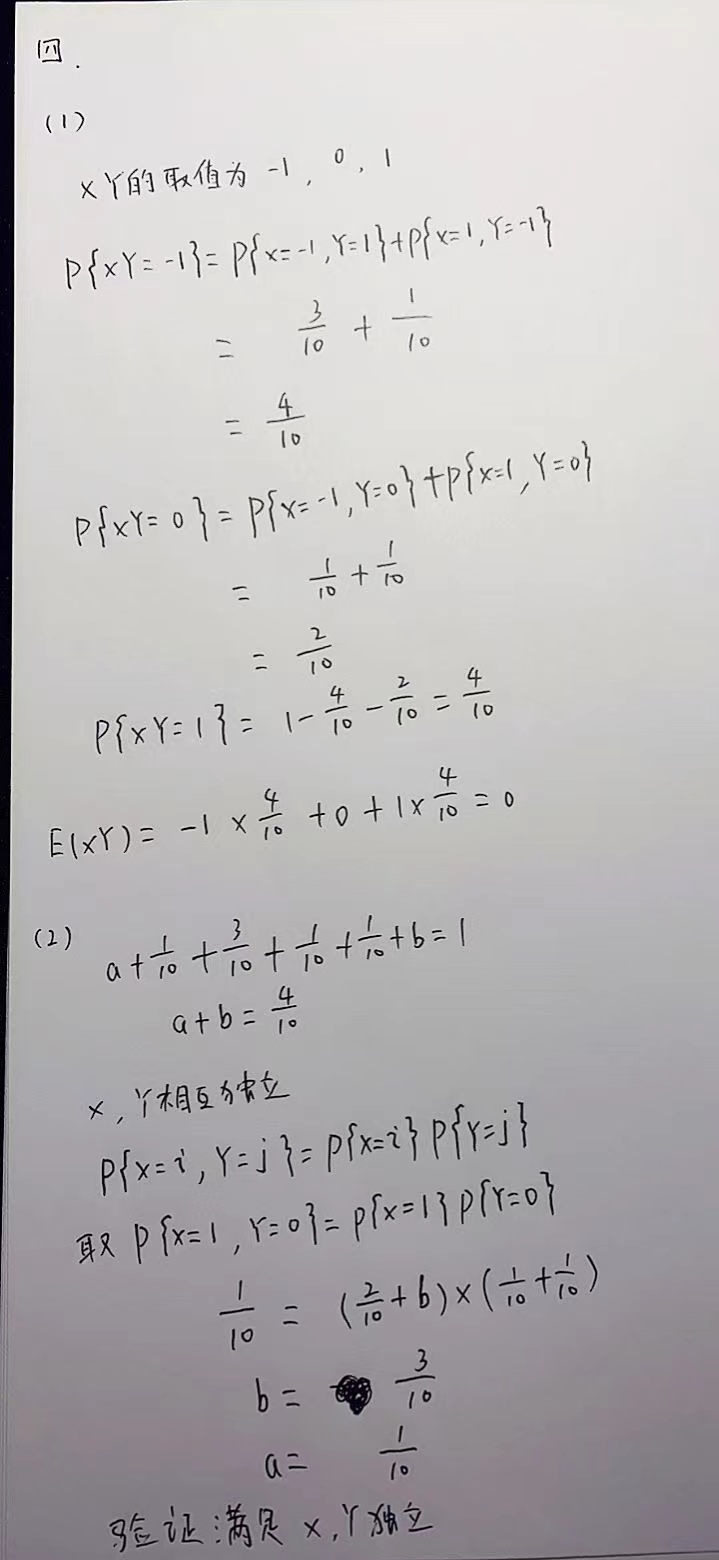 四.
(1)
XY的取值为 -1, 0, 1
P{XY=-1}=P{X=-1,Y=1}+P{X=1,Y=-1}
= 3/10 + 1/10
= 4/10
P{XY=0}=P{X=-1,Y=0}+P{X=1,Y=0}
= 1/10 + 1/10
= 2/10
P{XY=1}= 1-4/10-2/10=4/10
E(XY)= -1×4/10+0+1×4/10=0
(2) a+1/10+3/10+1/10+1/10+b=1
a+b=4/10
X,Y相互独立
P{X=i,Y=j}=P{X=i}P{Y=j}
取 P{X=1,Y=0}=P{X=1}P{Y=0}
1/10 = (2/10+b)×(1/10+1/10)
b= 3/10
a= 1/10
验证满足 X,Y独立